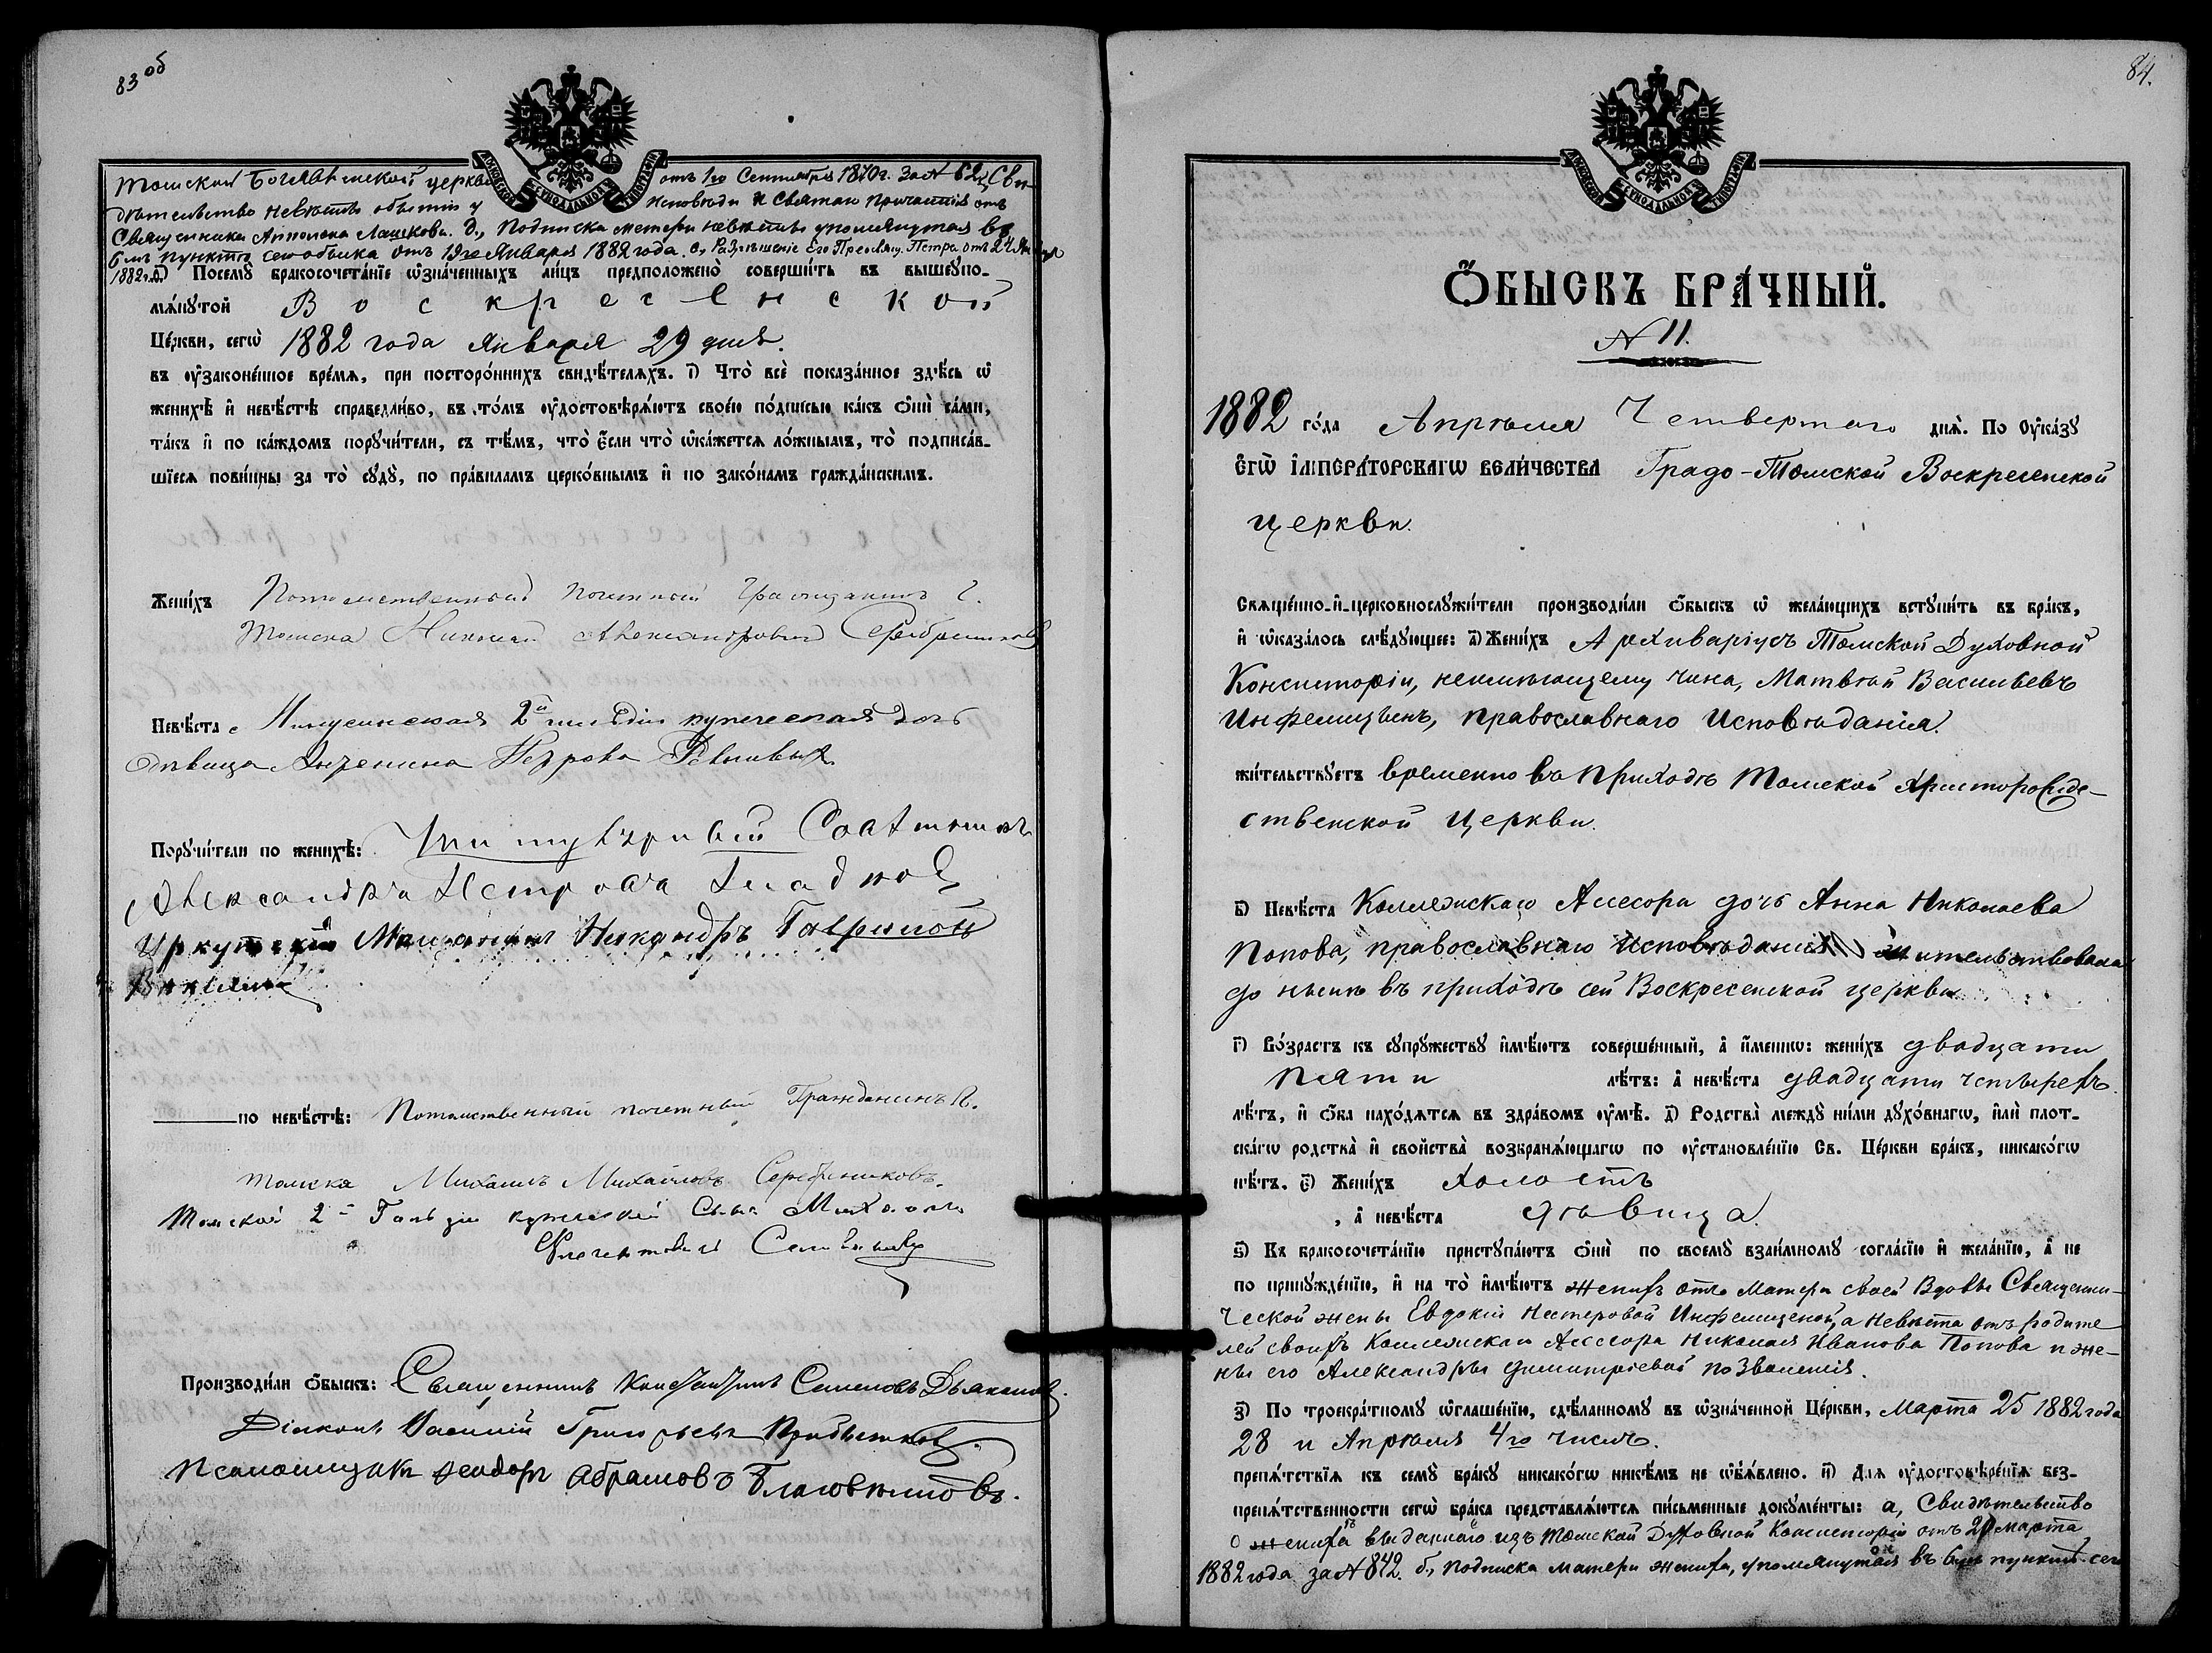 83 об
Томской Богоявленской церкви отъ 1го Сентября 1870 г. за № 62, Сви-
дѣтельство невѣстѣ объ исповѣди и Святаго Причастія отъ
Священника Лашкова. д., Подписка матери невѣсты упомянутая въ
6мъ пунктѣ сего обыска отъ 19го Января 1882 года. е, Разрѣшеніе Его Преосвящ. Петра отъ 24 Января
1882 г. Посемꙋ бракосочетанїе ѡзначенныхъ лицъ предположено совершить въ вышеꙋпо-
мѧнꙋтой Воскресенской
Церкви, сегѡ 1882 года Января 29 дня.
въ оузаконенное времѧ, при постороннихъ свидѣтелѧхъ. і) Что все показанное здѣсь ѡ
женихѣ и невѣстѣ справедливо, въ томъ оудостовѣрѧютъ своею подписью какъ они сами,
такъ и по каждомъ порꙋчители, съ тѣмъ, что если что ѡкажетсѧ ложнымъ, то подписав-
шїесѧ повинны за то сꙋдꙋ, по правиламъ церковнымъ и по законамъ гражданскимъ.
Женихъ Потомственный почетный Гражданинъ г.
Томска Николай Александровъ Серебренниковъ
Невѣста Минусинская 2й гильдіи купеческая дочь
дѣвица Петрова
Порꙋчители по женихѣ: Титулярный Совѣтникъ
Александръ Петровъ
Иркутскій Мѣщанинъ Никандръ Гавриловъ
по невѣстѣ: Потомственный почетный Гражданинъ г.
Томска Михаилъ Михайловъ Серебренниковъ.
Томской 2й Гильдіи купеческій Сынъ Михаилъ
Производили обыскъ: Священникъ Константинъ Семеновъ Дьяконовъ.
Діаконъ Василій Григорьевъ
Псаломщикъ Ѳеодоръ Абрамовъ
84.
ОБЫСКЪ БРАЧНЫЙ.
№ 11.
1882 года Апрѣля Четвертаго днѧ. По Оуказꙋ
ЕГѠ ІМПЕРАТОРСКАГѠ ВЕЛИЧЕСТВА Градо-Томской Воскресенской
церкви.
Свѧщенно-и-церковнослꙋжители производили обыскъ ѡ желающихъ встꙋпить въ бракъ,
и ѡказалось слѣдꙋющее: а) Женихъ Архиваріусъ Томской Духовной
Консисторіи, неимѣющему чина, Матвѣй Васильевъ
Инфелицынъ, православнаго Исповѣданія.
жительствꙋетъ временно въ приходѣ Томской Христорожде-
ственской Церкви.
в) Невѣста Коллежскаго Ассесора дочь Анна Николаева
Попова, православнаго Исповѣданія жительствовала
до нынѣ въ приходѣ сей Воскресенской церкви.
г) Возрастъ къ сꙋпрꙋжествꙋ имѣютъ совершенный, а именно: женихъ двадцати
пяти лѣтъ: а невѣста двадцати четырехъ
лѣтъ, и оба находѧтсѧ въ здравомъ оумѣ. д) Родства междꙋ ними дꙋховнагѡ, или плот-
скагѡ родства и свойства возбранѧющагѡ по оустановленїю Св. Церкви бракъ, никакогѡ
нѣтъ. е) Женихъ холостъ
, а невѣста дѣвица.
ѕ) Къ бракосочетанїю пристꙋпаютъ они по своемꙋ взаимномꙋ согласїю и желанїю, а не
по принꙋжденїю, и на то имѣютъ женихъ отъ Матери своей Вдовы Священни-
ческой жены Евдокіи Нестеровой Инфелицыной, а Невѣста отъ родите-
лей своихъ Коллежскаго Ассесора Николая Иванова Попова и же-
ны его Александры Димитріевой позволенія.
з) По троекратномꙋ ѡглашенїю, сдѣланномꙋ въ ѡзначенной Церкви, Марта 25 1882 года
28 и Апрѣля 4го числъ.
препѧтствїѧ къ семꙋ бракꙋ никакогѡ никѣмъ не ѡбъѧвлено. и) Длѧ оудостовѣренїѧ без-
препѧтственности сегѡ брака представлѧютсѧ письменные докꙋменты: а, Свидѣтельство
о женихѣ выданное изъ Томской Духовной Консисторіи отъ 20 Марта
1882 года за № 842. б, Подписка матери жениха, упомянутая въ 6мъ пунктѣ сего